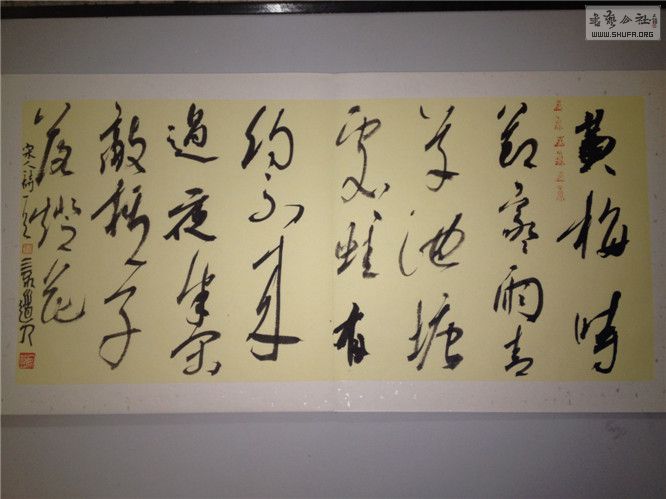 黄梅時
節家々雨青
草池塘
處々蛙有
約不来
過夜半閑
敲棋子
落燈花
宋人詩一首
書藝公社
WWW.SHUFA.ORG